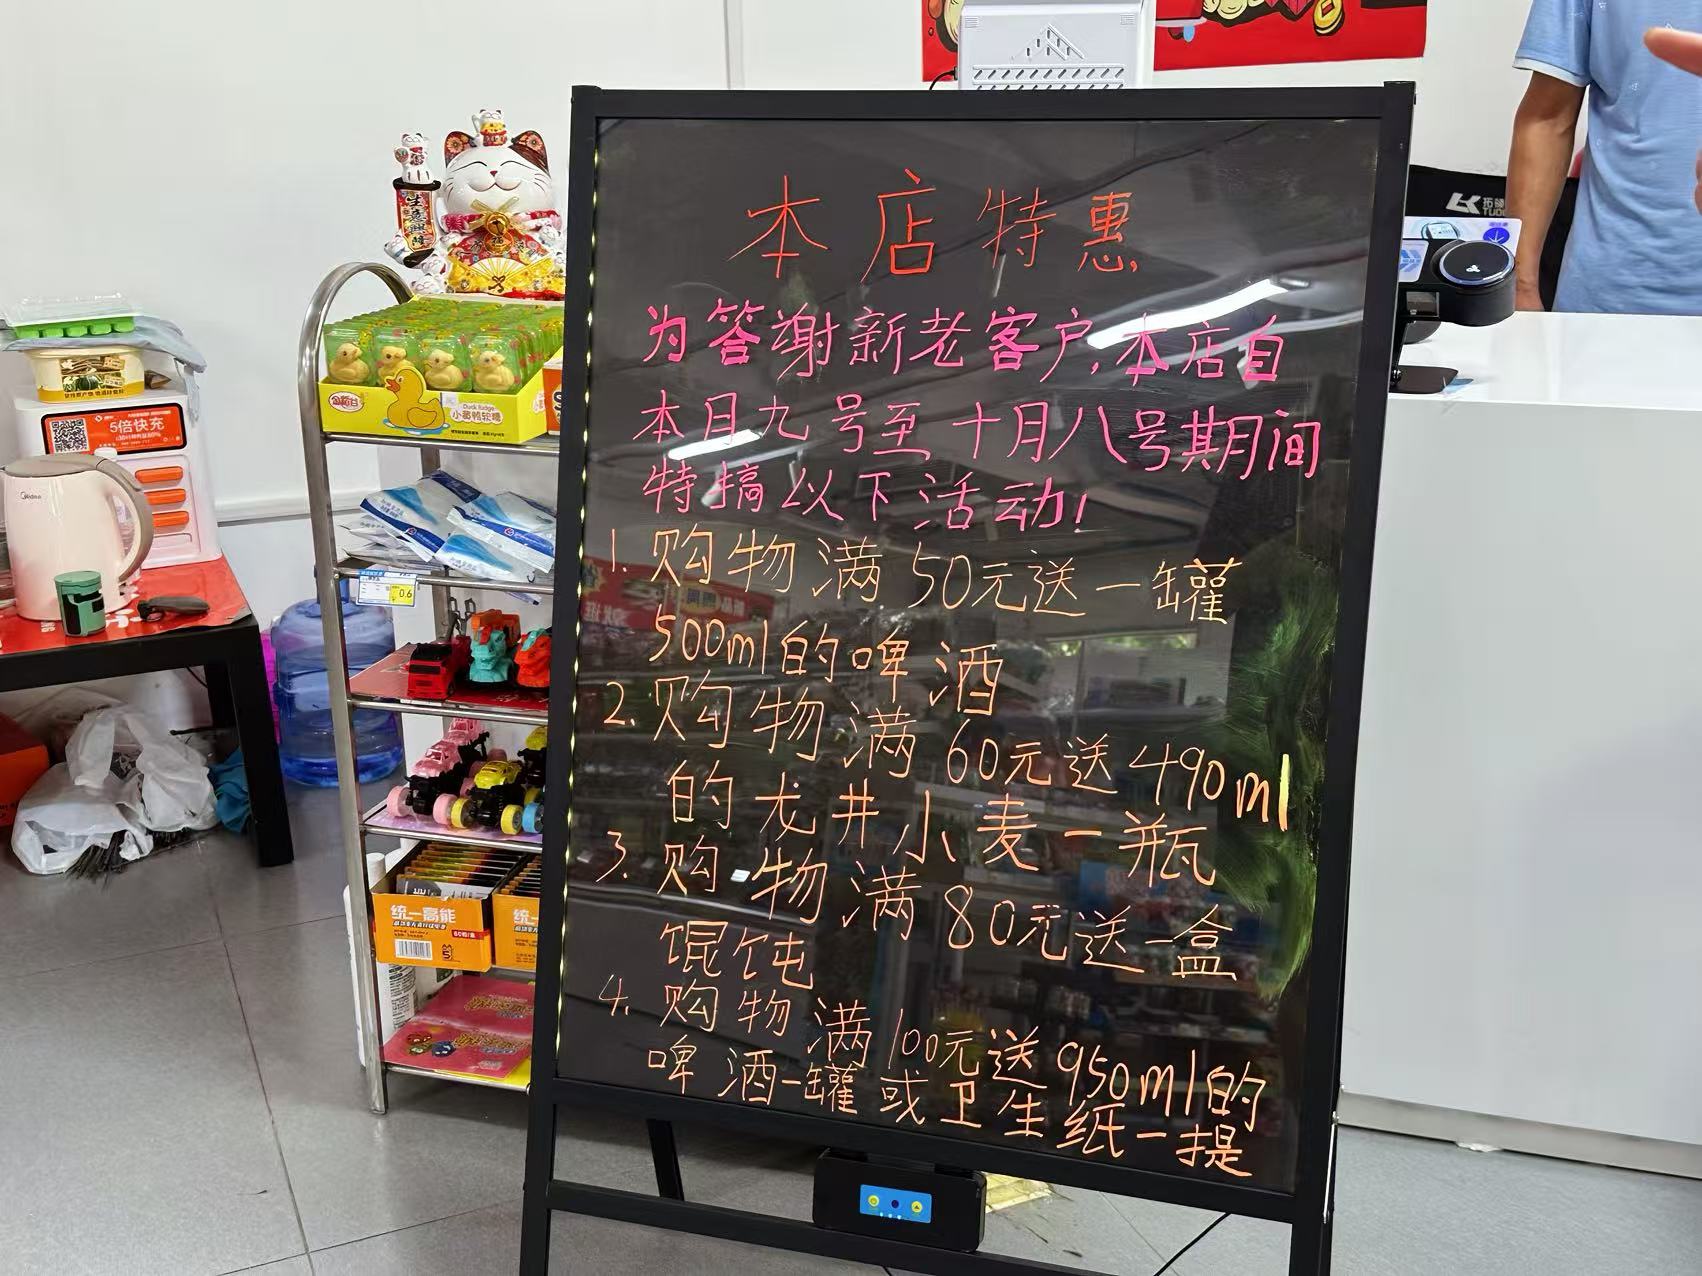 本店特惠
为答谢新老客户,本店自
本月九号至十月八号期间
特搞以下活动!
1. 购物满50元送一罐
500ml的啤酒
2. 购物满60元送490ml
的龙井小麦一瓶
3. 购物满80元送一盒
馄饨
4. 购物满100元送950ml的
啤酒一罐或卫生纸一提
5倍快充
Midea
生意興隆
Duck fudge
小黄鸭软糖
0.6
统一高能
统一